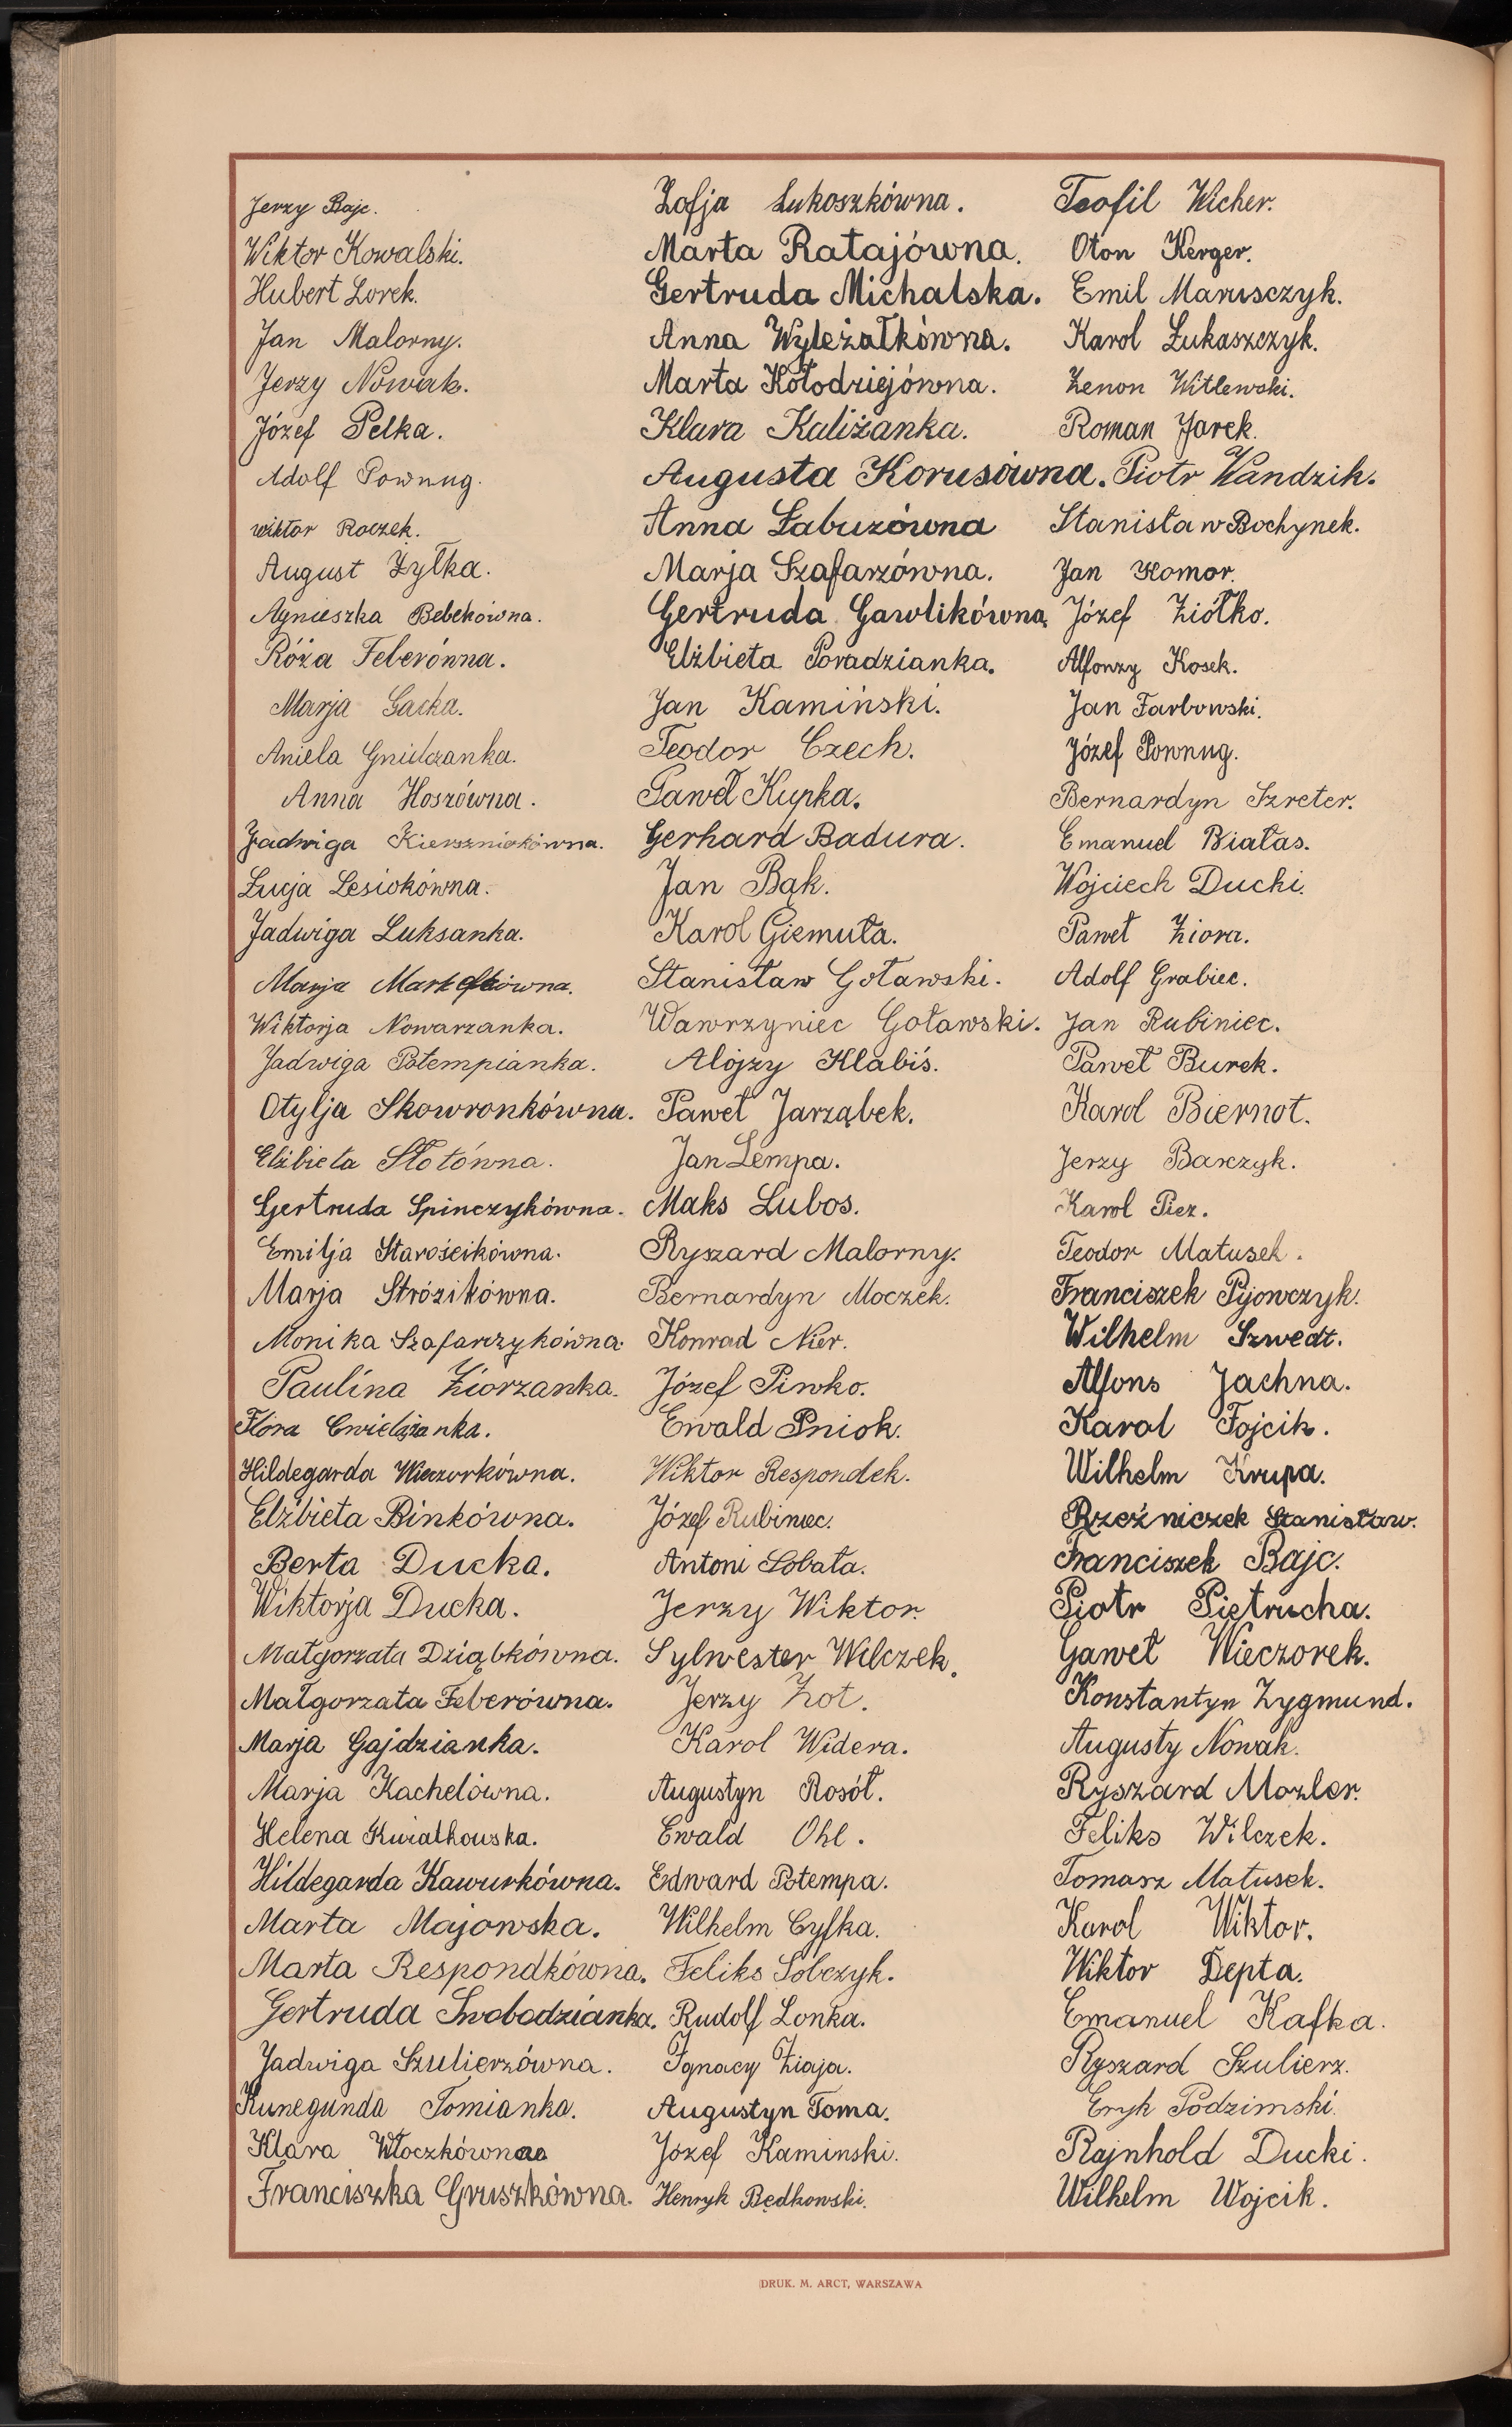 Jerzy Bajc.
Wiktor Kowalski.
Hubert Lorek.
Jan Malorny.
Jerzy Nowak.
Józef Pelka.
Adolf Pownug.
Wiktor Roczek.
August Żyłka.
Agnieszka Bebekówna.
Róża Feberówna.
Marja Gacka.
Aniela Gnidzanka.
Anna Hoszówna.
Jadwiga
Łucja Lesiokówna.
Jadwiga Luksanka.
Marja
Wiktorja Nowarzanka.
Jadwiga Potempianka.
Otylja Skowronkówna.
Elżbieta Słotówna.
Gertruda Spinczykówna.
Emilja Starościkówna.
Marja Strózikówna.
Monika Szafarczykówna.
Paulina Ziorzanka.
Flora
Hildegarda Wieczorkówna.
Elżbieta Binkówna.
Berta Ducka.
Wiktorja Ducka.
Małgorzata Dziąbkówna.
Małgorzata Feberówna.
Marja Gajdzianka.
Marja Kachelówna.
Helena Kwiatkowska.
Hildegarda Kawurkówna.
Marta Majowska.
Marta Respondkówna.
Gertruda Swobodzianka.
Jadwiga Szulierzówna.
Kunegunda Tomianka.
Klara Włoczkówna
Franciszka Gruszkówna.
Zofja Łukoszkówna.
Marta Ratajówna.
Gertruda Michalska.
Anna Wyleżałkówna.
Marta Kołodziejówna.
Klara Kaliżanka.
Augusta Korusówna.
Anna Łabuzówna
Marja Szafarzówna.
Gertruda Gawlikówna.
Elżbieta Poradzianka.
Jan Kamiński.
Teodor Czech.
Paweł Kupka.
Gerhard Badura.
Jan Bąk.
Karol Giemuła.
Stanisław Goławski.
Wawrzyniec Goławski.
Alojzy Klabiś.
Paweł Jarząbek.
Jan Lempa.
Maks Lubos.
Ryszard Malorny.
Bernardyn Moczek.
Konrad Nier.
Józef Piwko.
Ewald Pniok.
Wiktor Respondek.
Józef Rubiniec.
Antoni Sobata.
Jerzy Wiktor.
Sylwester Wilczek.
Jerzy Żot.
Karol Widera.
Augustyn Rosół.
Ewald Ohl.
Edward Potempa.
Wilhelm Cyfka.
Feliks Sobczyk.
Rudolf Lonka.
Ignacy Ziaja.
Augustyn Toma.
Józef Kaminski.
Henryk Będkowski.
Teofil Wicher.
Oton Kerger.
Emil Marusczyk.
Karol Łukaszczyk.
Zenon Witlewski.
Roman Jarek.
Piotr Wandzik.
Stanisław Bochynek.
Jan Komor.
Józef Ziółko.
Alfonzy Kosek.
Jan Farbowski.
Józef Pownug.
Bernardyn Szreter.
Emanuel Białas.
Wojciech Ducki.
Paweł Ziora.
Adolf Grabiec.
Jan Rubiniec.
Paweł Burek.
Karol Biernot.
Jerzy Barczyk.
Karol Piez.
Teodor Matusek.
Franciszek Pijowczyk.
Wilhelm Szwedt.
Alfons Jachna.
Karol Fojcik.
Wilhelm Krupa.
Rzeźniczek Stanisław.
Franciszek Bajc.
Piotr Pietrucha.
Gaweł Wieczorek.
Konstantyn Zygmund.
Augusty Nowak.
Ryszard Mozler.
Feliks Wilczek.
Tomasz Matusek.
Karol Wiktor.
Wiktor Depta.
Emanuel Kafka.
Ryszard Szulierz.
Eryk Podzimski.
Rajnhold Ducki.
Wilhelm Wojcik.
DRUK. M. ARCT, WARSZAWA